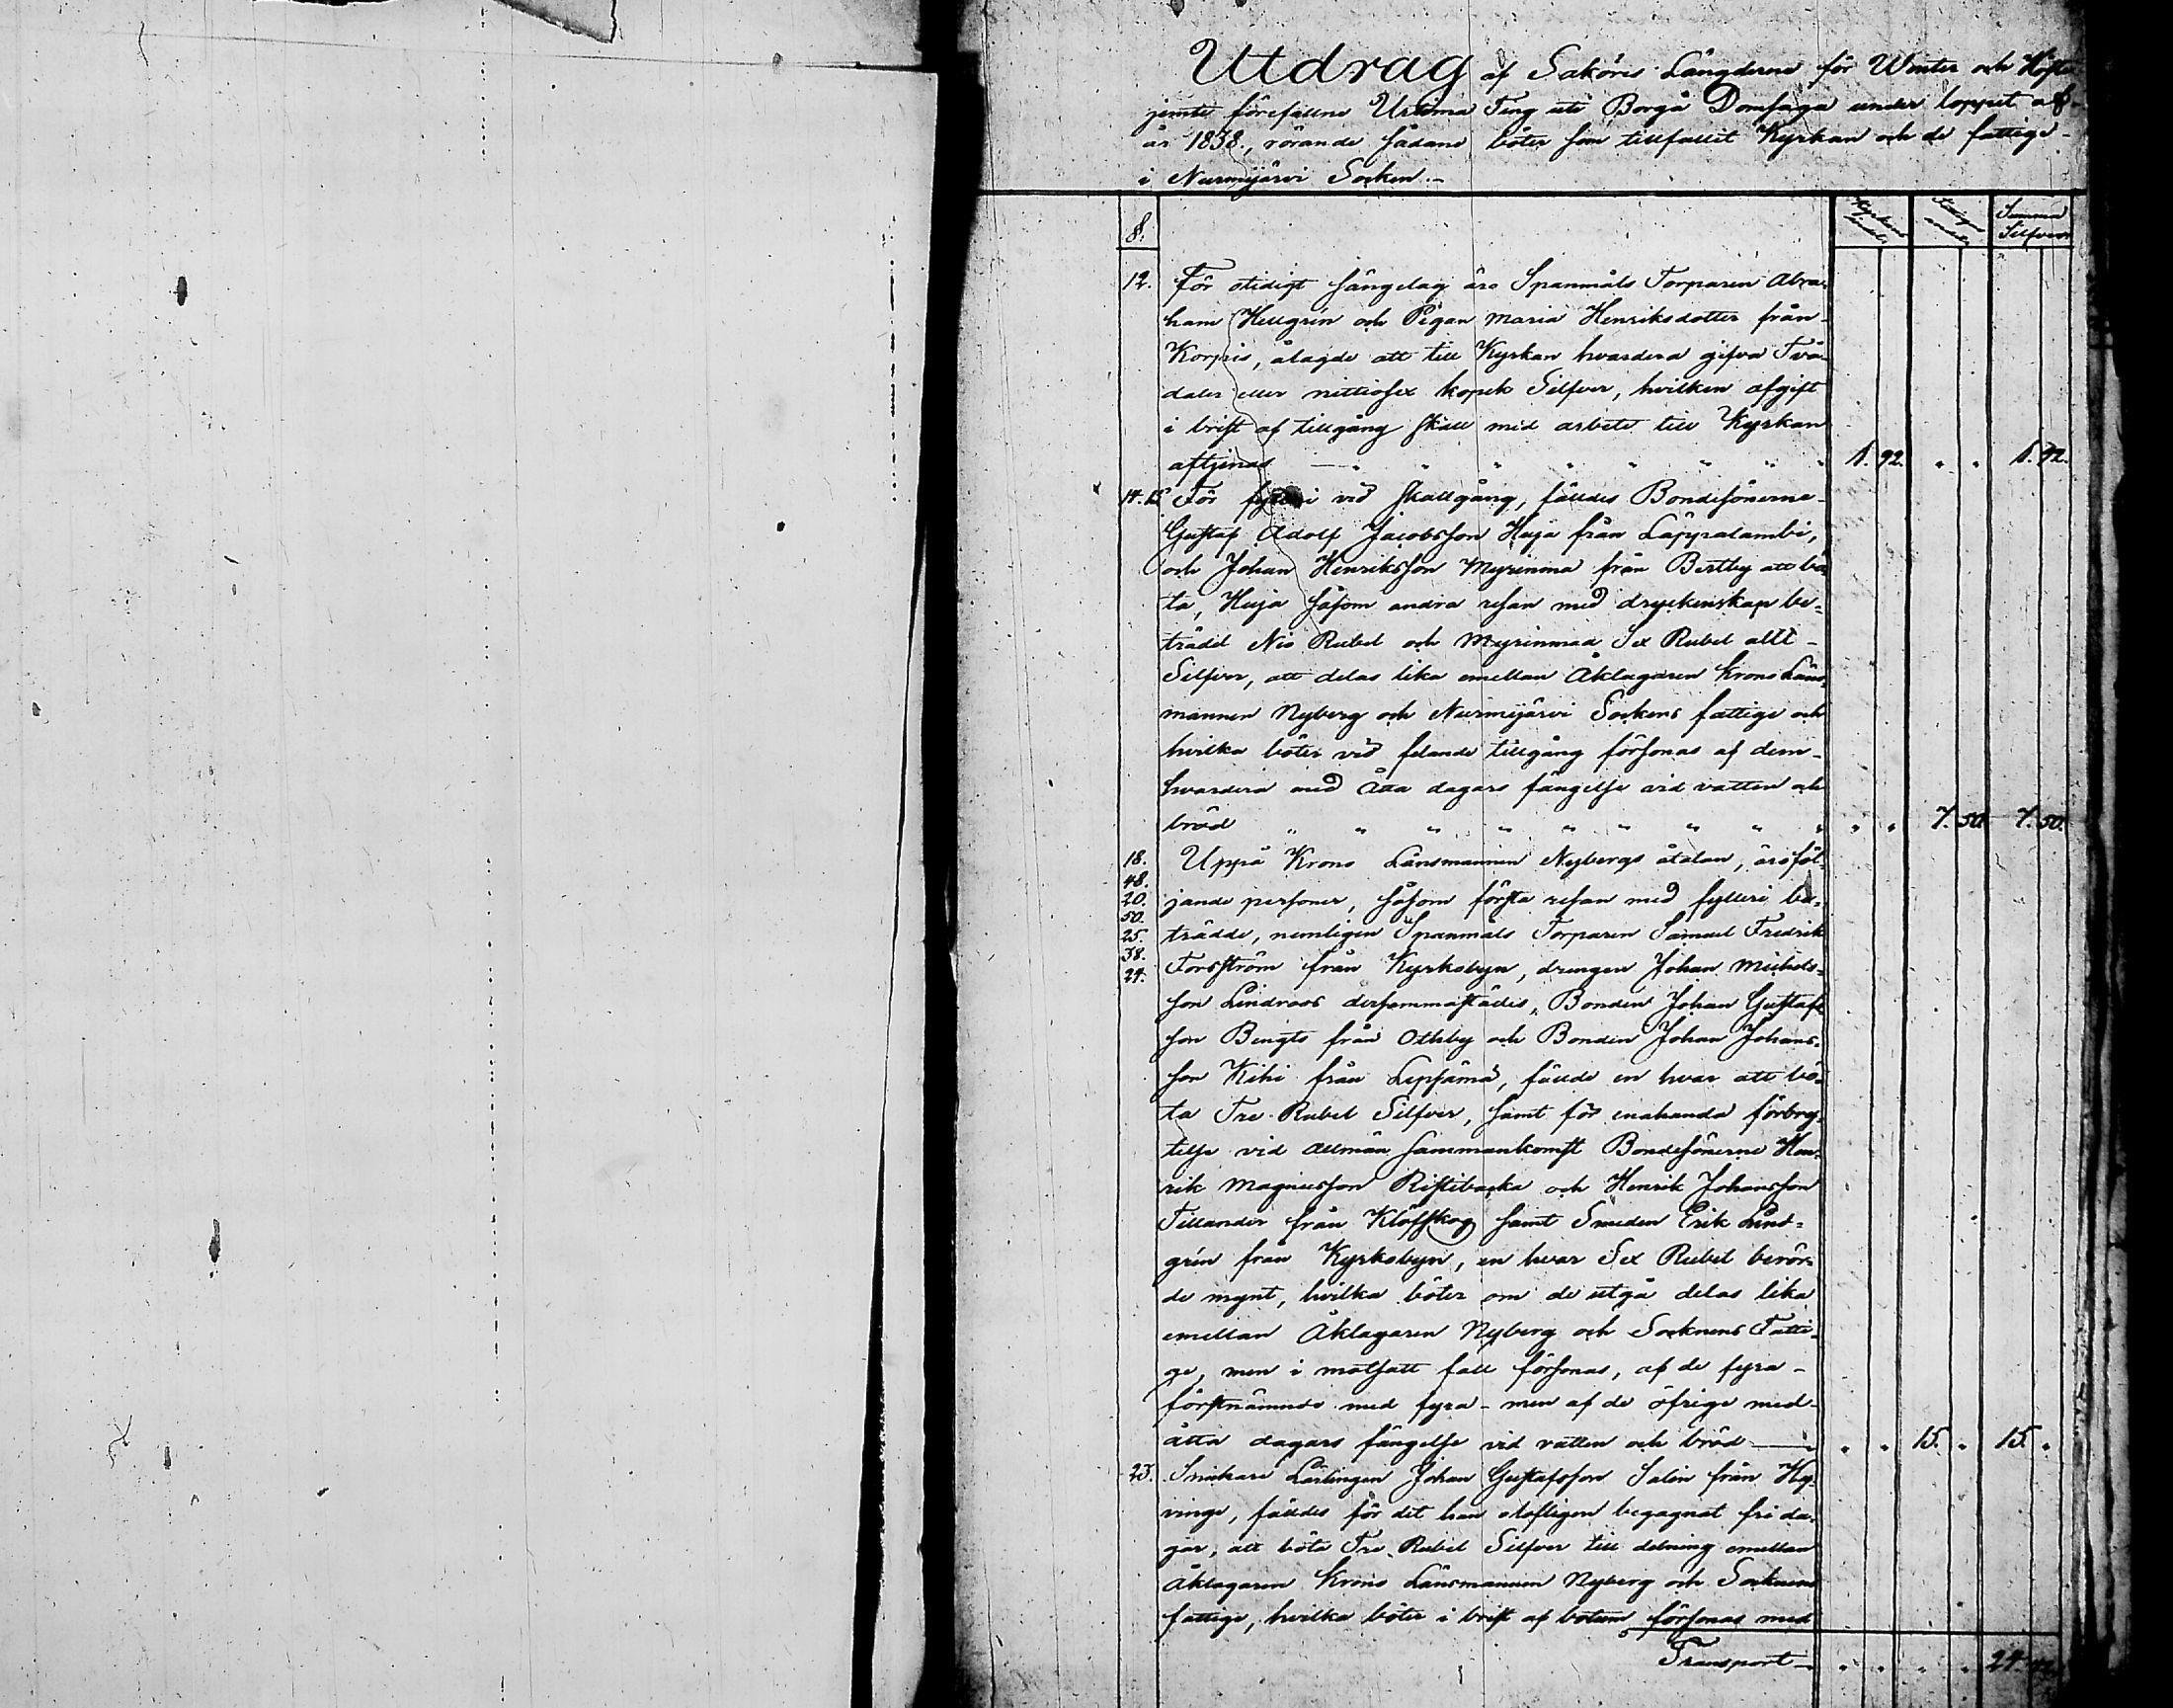 Utdrag af Saköres Längderne för Winter och Höste
jemte förefallne Urtima Ting uti Borgå Domsaga under loppet af
år 1838., rörande sådane böter som tillfallit Kyrkan och de fattige
i Nurmijärvi Socken.
§. Summa Silfver
12. För otidigt sängelag äro Spanmåls Torparen Abra-
ham Hellgrén och Pigan Maria Henriksdotter från
Korpis, ålagde att till Kyrkan hvardera gifva Två
daler eller nittiosex kopek Silfver, hvilken afgift
i brist af tillgång skall med arbete till Kyrkan
aftjenas 1. 92. 1. 92.
14. 15 För fylleri vid skallgång, fälldes Bondesönerne
Gustaf Adolf Jacobsson Huja från Läpyralambi,
och Johan Henriksson Myrinmaa från Bertby att bö-
ta, Huja såsom andra resan med dryckenskap be-
trädd Nio Rubel och Myrinmaa Sex Rubel allt
Silfver, att delas lika emellan Åklagaren Krono Läns-
mannen Nyberg och Nurmijärvi Sockens fattige och
hvilka böter vid felande tillgång försonas af dem
hvardera med Åtta dagars fängelse vid vatten och
bröd 7. 50 7. 50.
18. Uppå Krono Länsmannen Nybergs åtalan, äro föl-
48.
20. jande personer, såsom första resan med fylleri be-
50.
25. trädde, nemligen Spanmåls Torparen Samuel Fredrik
38.
24. Forsström från Kyrkobyn, drengen Johan Michels-
son Lindroos dersammastädes, Bonden Johan Gustafs
son Bengts från Othby och Bonden Johan Johans-
son Kihi från Lepsämä, fällde en hvar att bö-
ta Tre Rubel Silfver, samt för enahanda förbry-
telse vid allmän sammankomst Bondesönerne Hen-
rik Magnusson Ristibacka och Henrik Johansson
Tillander från Klöfskog samt Smeden Erik Lind-
grén från Kyrkobyn, en hvar Sex Rubel berör-
de mynt, hvilka böter om de utgå delas lika
emellan Åklagaren Nyberg och Socknens Fatti-
ge, men i motsatt fall försonas, af de fyra
förstnämnde med fyra – men af de öfrige med
åtta dagars fängelse vid vatten och bröd 15. 15.
23. Snickare Lärlingen Johan Gustafsson Salin från Hy-
vinge, fälldes för det han olofligen begagnat fri da-
gar, att böta Tre Rubel Silfver till delning emellan
Åklagaren Krono Länsmannen Nyberg och Socknens
fattige, hvilka böter i brist af botum försonas med
Transport 24.